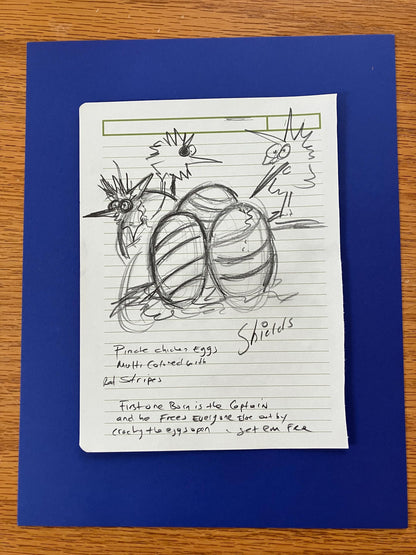 Shields
Pirate chicken Eggs
Multi Colored with
Red Stripes
First one Born is the Captain
and he Frees Everyone Else out by
cracking the eggs open - set em Free